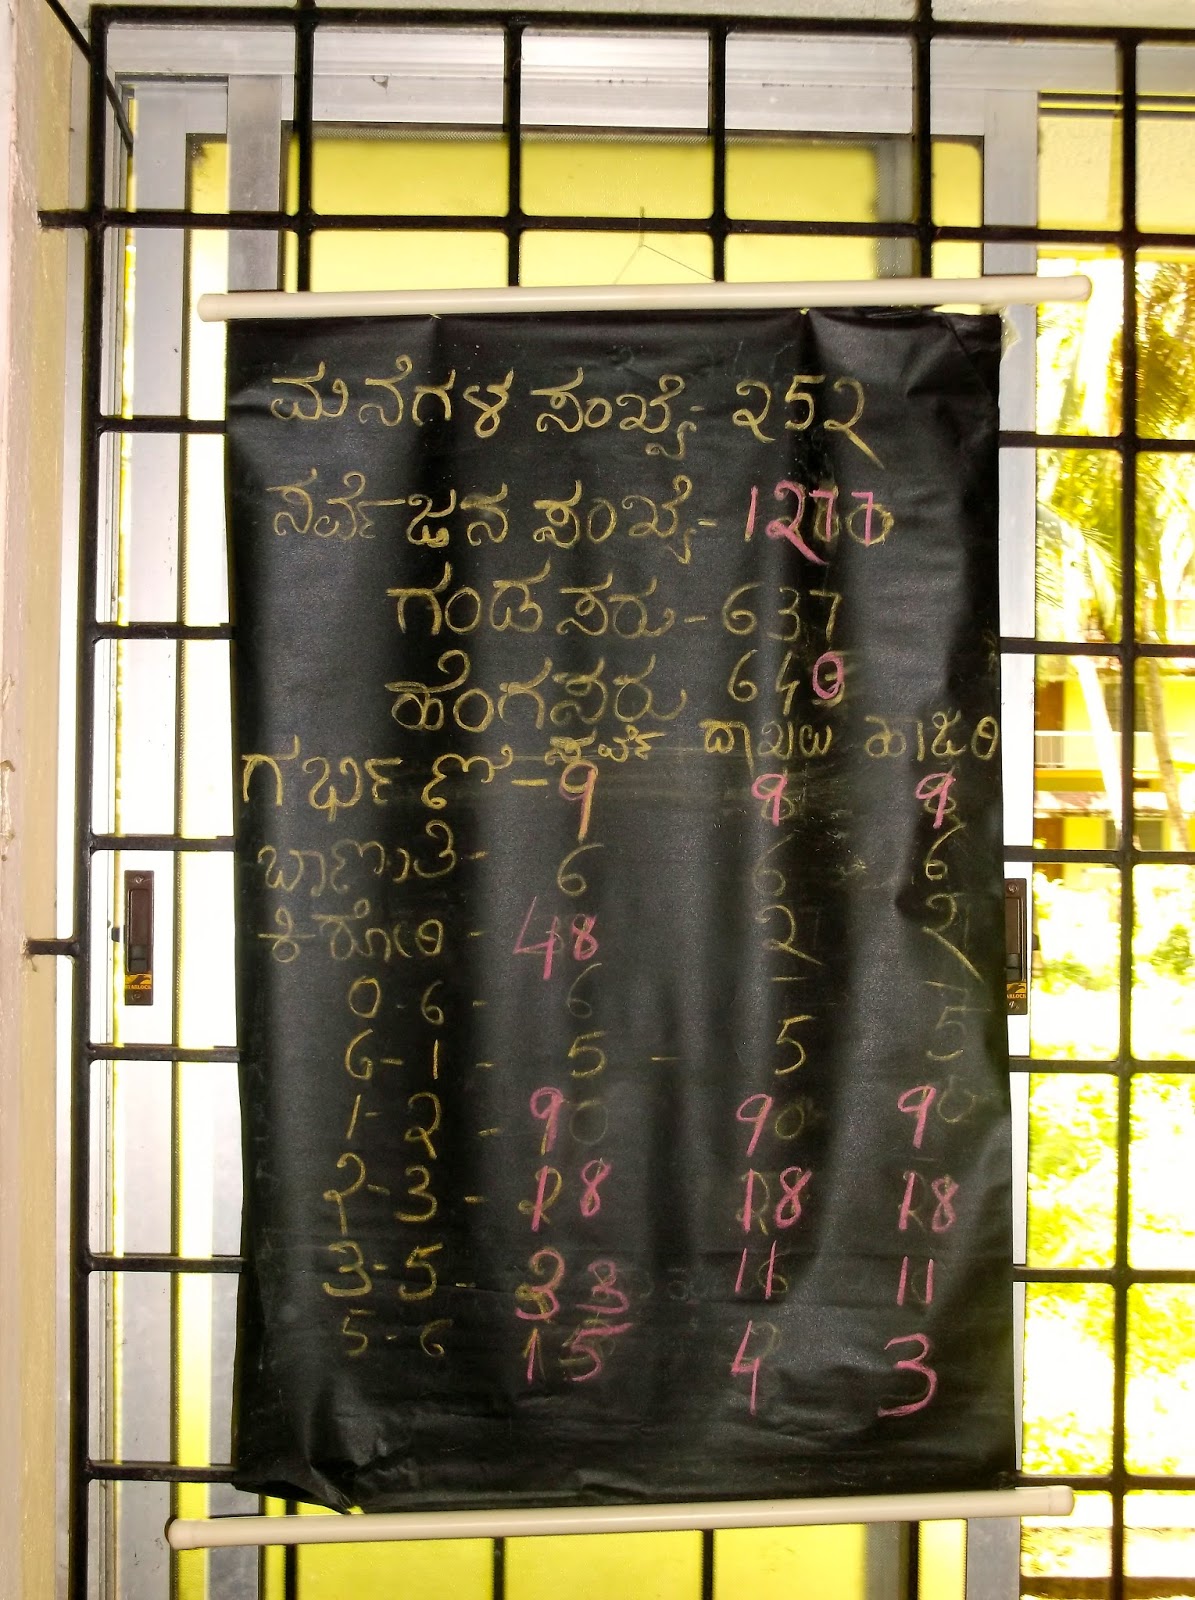 ಮನೆಗಳ ಸಂಖ್ಯೆ- ೨5೨
ಸರ್ವೆ ಜನ ಸಂಖ್ಯೆ- 1277
ಗಂಡಸರು - 637
ಹೆಂಗಸರು 640
ಸರ್ವೆ ದಾಖಲು ಹಾಜರಿ
ಗರ್ಭಿಣಿ - 9 9 9
ಬಾಣಂತಿ - 6 6 6
ಕಿಶೋರಿ - 48 2 2
0 - 6 - 6
6 - 1 - 5 - 5 5
1 - 2 - 9 9 9
೨ - 3 - 18 18 18
3 - 5 - 33 11 11
5 - 6 15 4 3